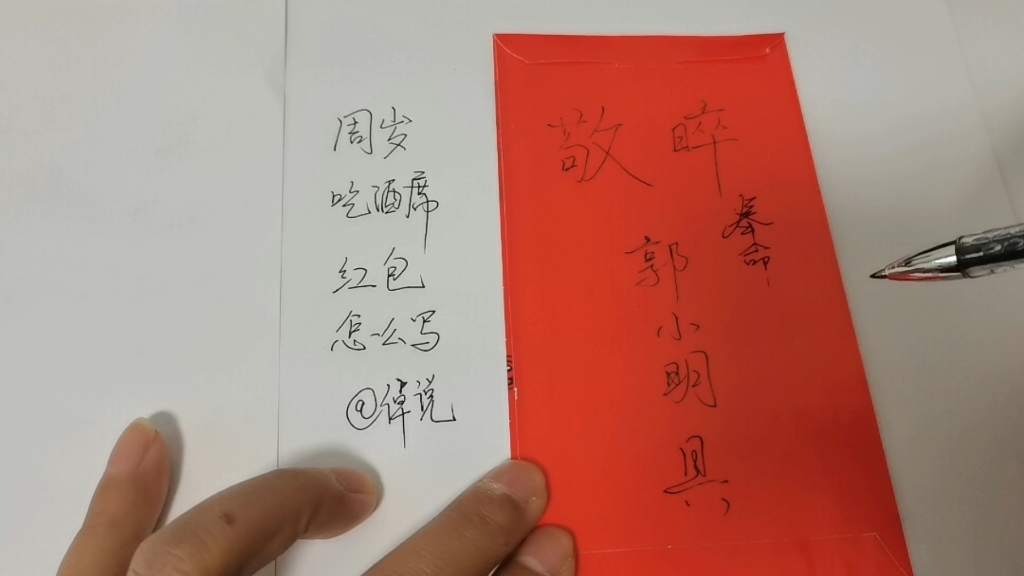 周岁
吃酒席
红包
怎么写
@绰说
晬敬
奉命
郭小明 具